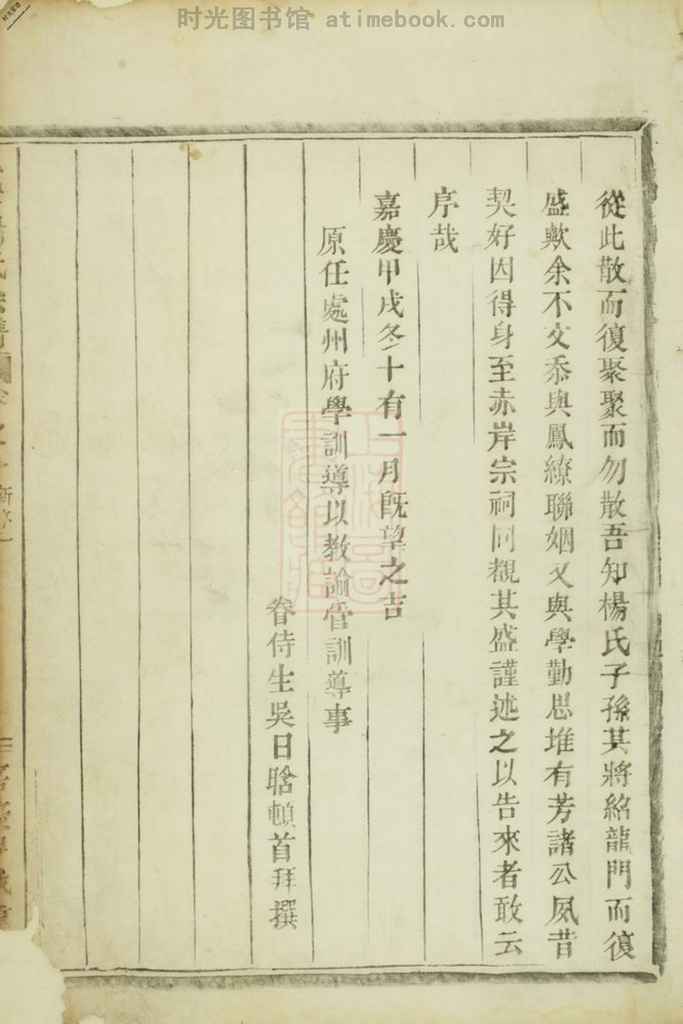 时光图书馆 atimebook.com
從此散而復聚聚而勿散吾知楊氏子孫其將紹龍門而復
盛歟余不文忝與鳳繚聯姻又與學勤思堆有芳諸公夙昔
契好因得身至赤岸宗祠同觀其盛謹述之以告來者敢云
序哉
嘉慶甲戌冬十有一月既望之吉
原任處州府學訓導以教諭管訓導事
眷侍生吳日晗頓首拜撰